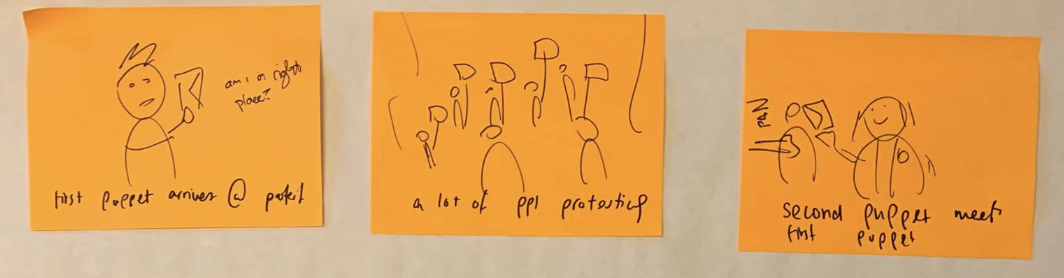 am i in right
place?
first puppet arrives @ protest
a lot of ppl protesting
PAN
second puppet meets
first puppet